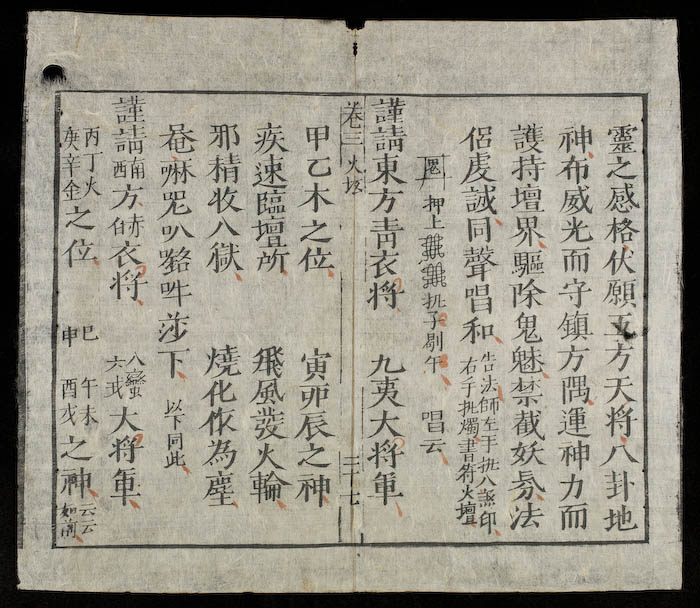 靈之感格伏願五方天將八卦地
神布威光而守鎮方隅運神力而
護持壇界驅除鬼魅禁截妖氛法
侶虔誠同聲唱和 告法師左手執八煞印
右手執燭書符火壇
押上 執子剔午 唱云
謹請東方青衣將 九夷大將軍
卷三 火壇 三十七
甲乙木之位 寅卯辰之神
疾速臨壇所 飛風發火輪
邪精收入獄 燒化作為塵
唵㖫咒叭㗉吽莎下 以下同此
謹請南方赤衣將 八蠻大將軍
西 白 六戎
丙丁火之位 巳午未之神 云云
庚辛金 申酉戌 如前